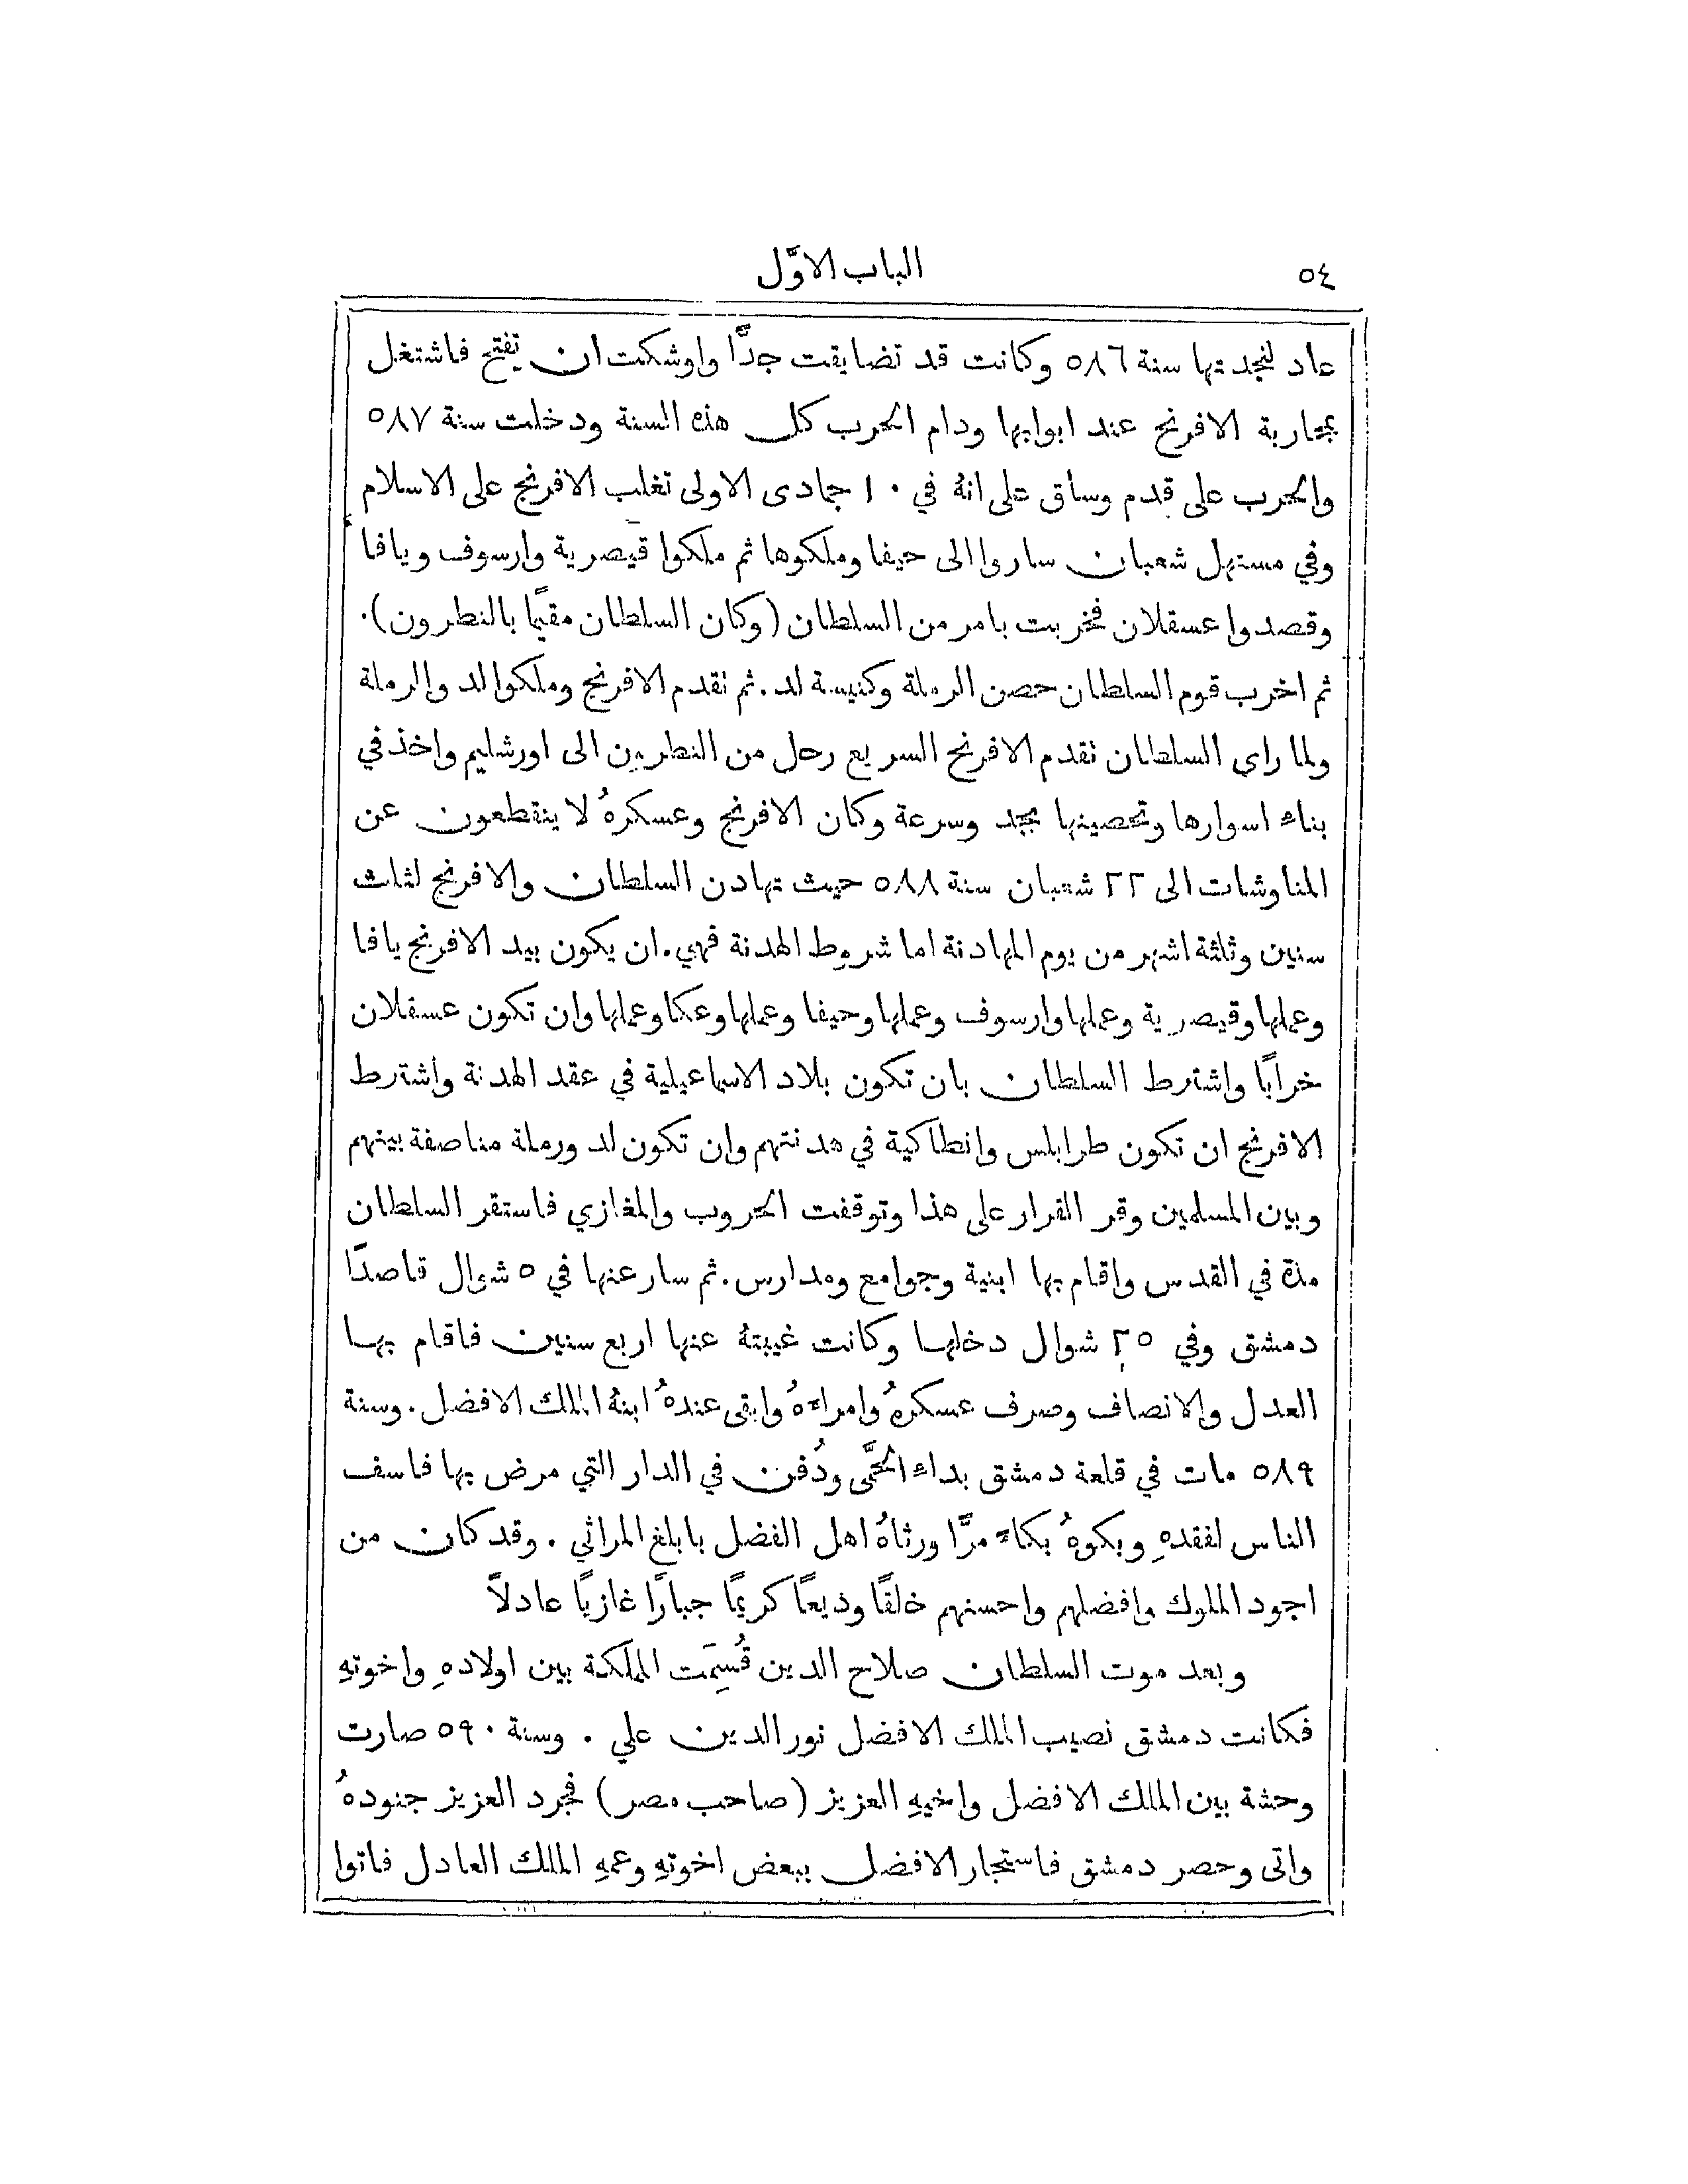 ٥٤
الباب الاوَّل
عاد لنجدتها سنة ٥٨٦ وكانت قد تضايقت جدًّا واوشكت ان تفتح فاشتغل
بمحاربة الافرنج عند ابوابها ودام الحرب كل هذه السنة ودخلت سنة ٥٨٧
والحرب على قدم وساق على انهُ في ١٠ جمادى الاولى تغلب الافرنج على الاسلام
وفي مستهل شعبان ساروا الى حيفا وملكوها ثم ملكوا قيصرية وارسوف ويافا
وقصدوا عسقلان فخربت بامر من السلطان (وكان السلطان مقيمًا بالنطرون).
ثم اخرب قوم السلطان حصن الرملة وكنيسة لد. ثم نقدم الافرنج وملكوا لد والرملة
ولما راى السلطان نقدم الافرنج السريع رحل من النطرون الى اورشليم واخذ في
بناء اسوارها وتحصينها بجد وسرعة وكان الافرنج وعسكرهُ لا ينقطعون عن
المناوشات الى ٢٢ شعبان سنة ٥٨٨ حيث تهادن السلطان والافرنج لثلث
سنين وثلثة اشهر من يوم المهادنة اما شروط الهدنة فهي. ان يكون بيد الافرنج يافا
وعملها وقيصرية وعملها وارسوف وعملها وحيفا وعملها وعكا وعملها وان تكون عسقلان
خرابًا واشترط السلطان بان تكون بلاد الاسماعيلية في عقد الهدنة واشترط
الافرنج ان تكون طرابلس وانطاكية في هدنتهم وان تكون لد ورملة مناصفة بينهم
وبين المسلمين وقر القرار على هذا وتوقفت الحروب والمغازي فاستقر السلطان
مدة في القدس واقام بها ابنية وجوامع ومدارس. ثم سار عنها في ٥ شوال قاصدًا
دمشق وفي ٢٥ شوال دخلها وكانت غيبتهُ عنها اربع سنين فاقام بها
العدل والانصاف وصرف عسكرهُ وامراءهُ وابقى عندهُ ابنهُ الملك الافضل. وسنة
٥٨٩ مات في قلعة دمشق بداء الحمَّى ودُفن في الدار التي مرض بها فاسف
الناس لفقدهِ وبكوهُ بكاءً مرًّا ورثاهُ اهل الفضل بابلغ المراثي. وقد كان من
اجود الملوك وافضلهم واحسنهم خلقًا وذيعًا كريمًا جبارًا غازيًا عادلاً
وبعد موت السلطان صلاح الدين قُسِمَت المملكة بين اولادهِ واخوتهِ
فكانت دمشق نصيب الملك الافضل نور الدين علي. وسنة ٥٩٠ صارت
وحشة بين الملك الافضل واخيهِ العزيز (صاحب مصر) فجرد العزيز جنودهُ
واتى وحصر دمشق فاستجار الافضل ببعض اخوتهِ وعمهِ الملك العادل فاتوا